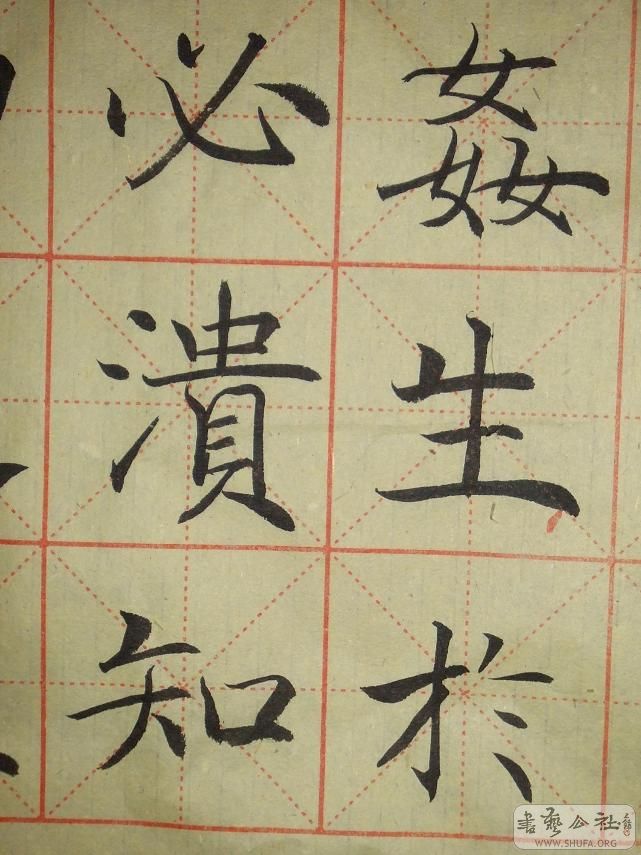 姦生於
必潰知
書藝公社
WWW.SHUFA.ORG